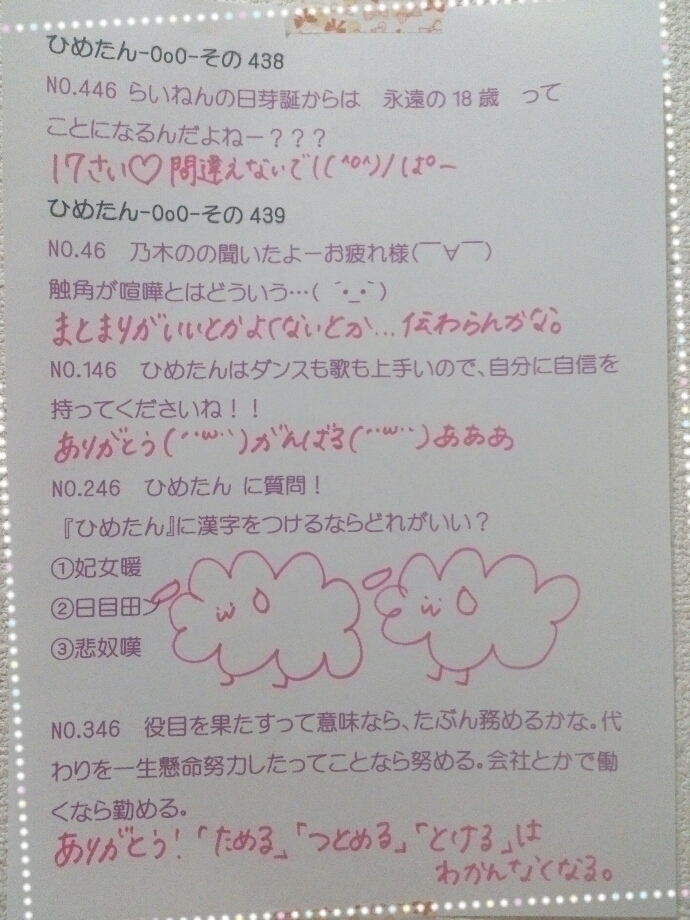 ひめたん-OoO-その438
NO.446 らいねんの日芽誕からは　永遠の18歳　って
ことになるんだよねー？？？
17さい♡間違えないで((^o^)/はーい
ひめたん-OoO-その439
NO.46　乃木のの聞いたよーお疲れ様(￣∀￣)
触角が喧嘩とはどういう…( ´•_•｀)
まとまりがいいとかよくないとか…伝わらんかな。
NO.146　ひめたんはダンスも歌も上手いので、自分に自信を
持ってくださいね！！
ありがとう(´･ω･`)がんばる(´･ω･`)あああ
NO.246　ひめたん に質問！
『ひめたん』に漢字をつけるならどれがいい？
①妃女暖
②日目田ン
③悲奴嘆
NO.346　役目を果たすって意味なら、たぶん務めるかな。代
わりを一生懸命努力したってことなら努める。会社とかで働
くなら勤める。
ありがとう！「ためる」「つとめる」「とける」は
わかんなくなる。